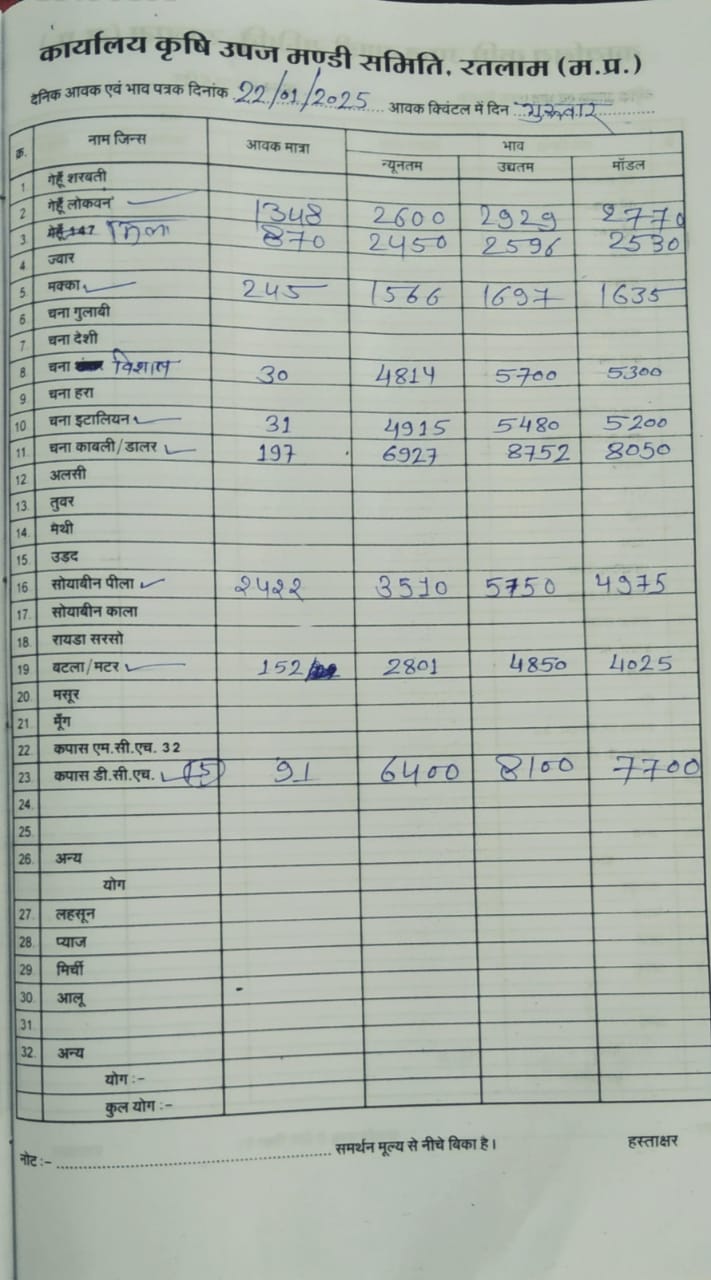 कार्यालय कृषि उपज मण्डी समिति, रतलाम (म.प्र.)
दैनिक आवक एवं भाव पत्रक दिनांक 22/01/2025 आवक क्विंटल में दिन गुरूवार
क्र. नाम जिन्स आवक मात्रा भाव
न्यूनतम उच्चतम मॉडल
1. गेहूँ शरबती
2. गेहूँ लोकवन 1348 2600 2929 2770
3. गेहूँ 147 मिल 870 2450 2596 2530
4. ज्वार
5. मक्का 245 1566 1697 1635
6. चना गुलाबी
7. चना देशी
8. चना विशाल 30 4814 5700 5300
9. चना हरा
10. चना इटालियन 31 4915 5480 5200
11. चना काबली/डालर 197 6927 8752 8050
12. अलसी
13. तुवर
14. मेथी
15. उडद
16. सोयाबीन पीला 2422 3510 5750 4975
17. सोयाबीन काला
18. रायडा सरसो
19. बटला/मटर 152 2801 4850 4025
20. मसूर
21. मूँग
22. कपास एम.सी.एच. 32
23. कपास डी.सी.एच. 91 6400 8100 7700
24.
25.
26. अन्य
योग
27. लहसून
28. प्याज
29. मिर्ची
30. आलू
31.
32. अन्य
योग :-
कुल योग :-
नोट :- समर्थन मूल्य से नीचे बिका है। हस्ताक्षर